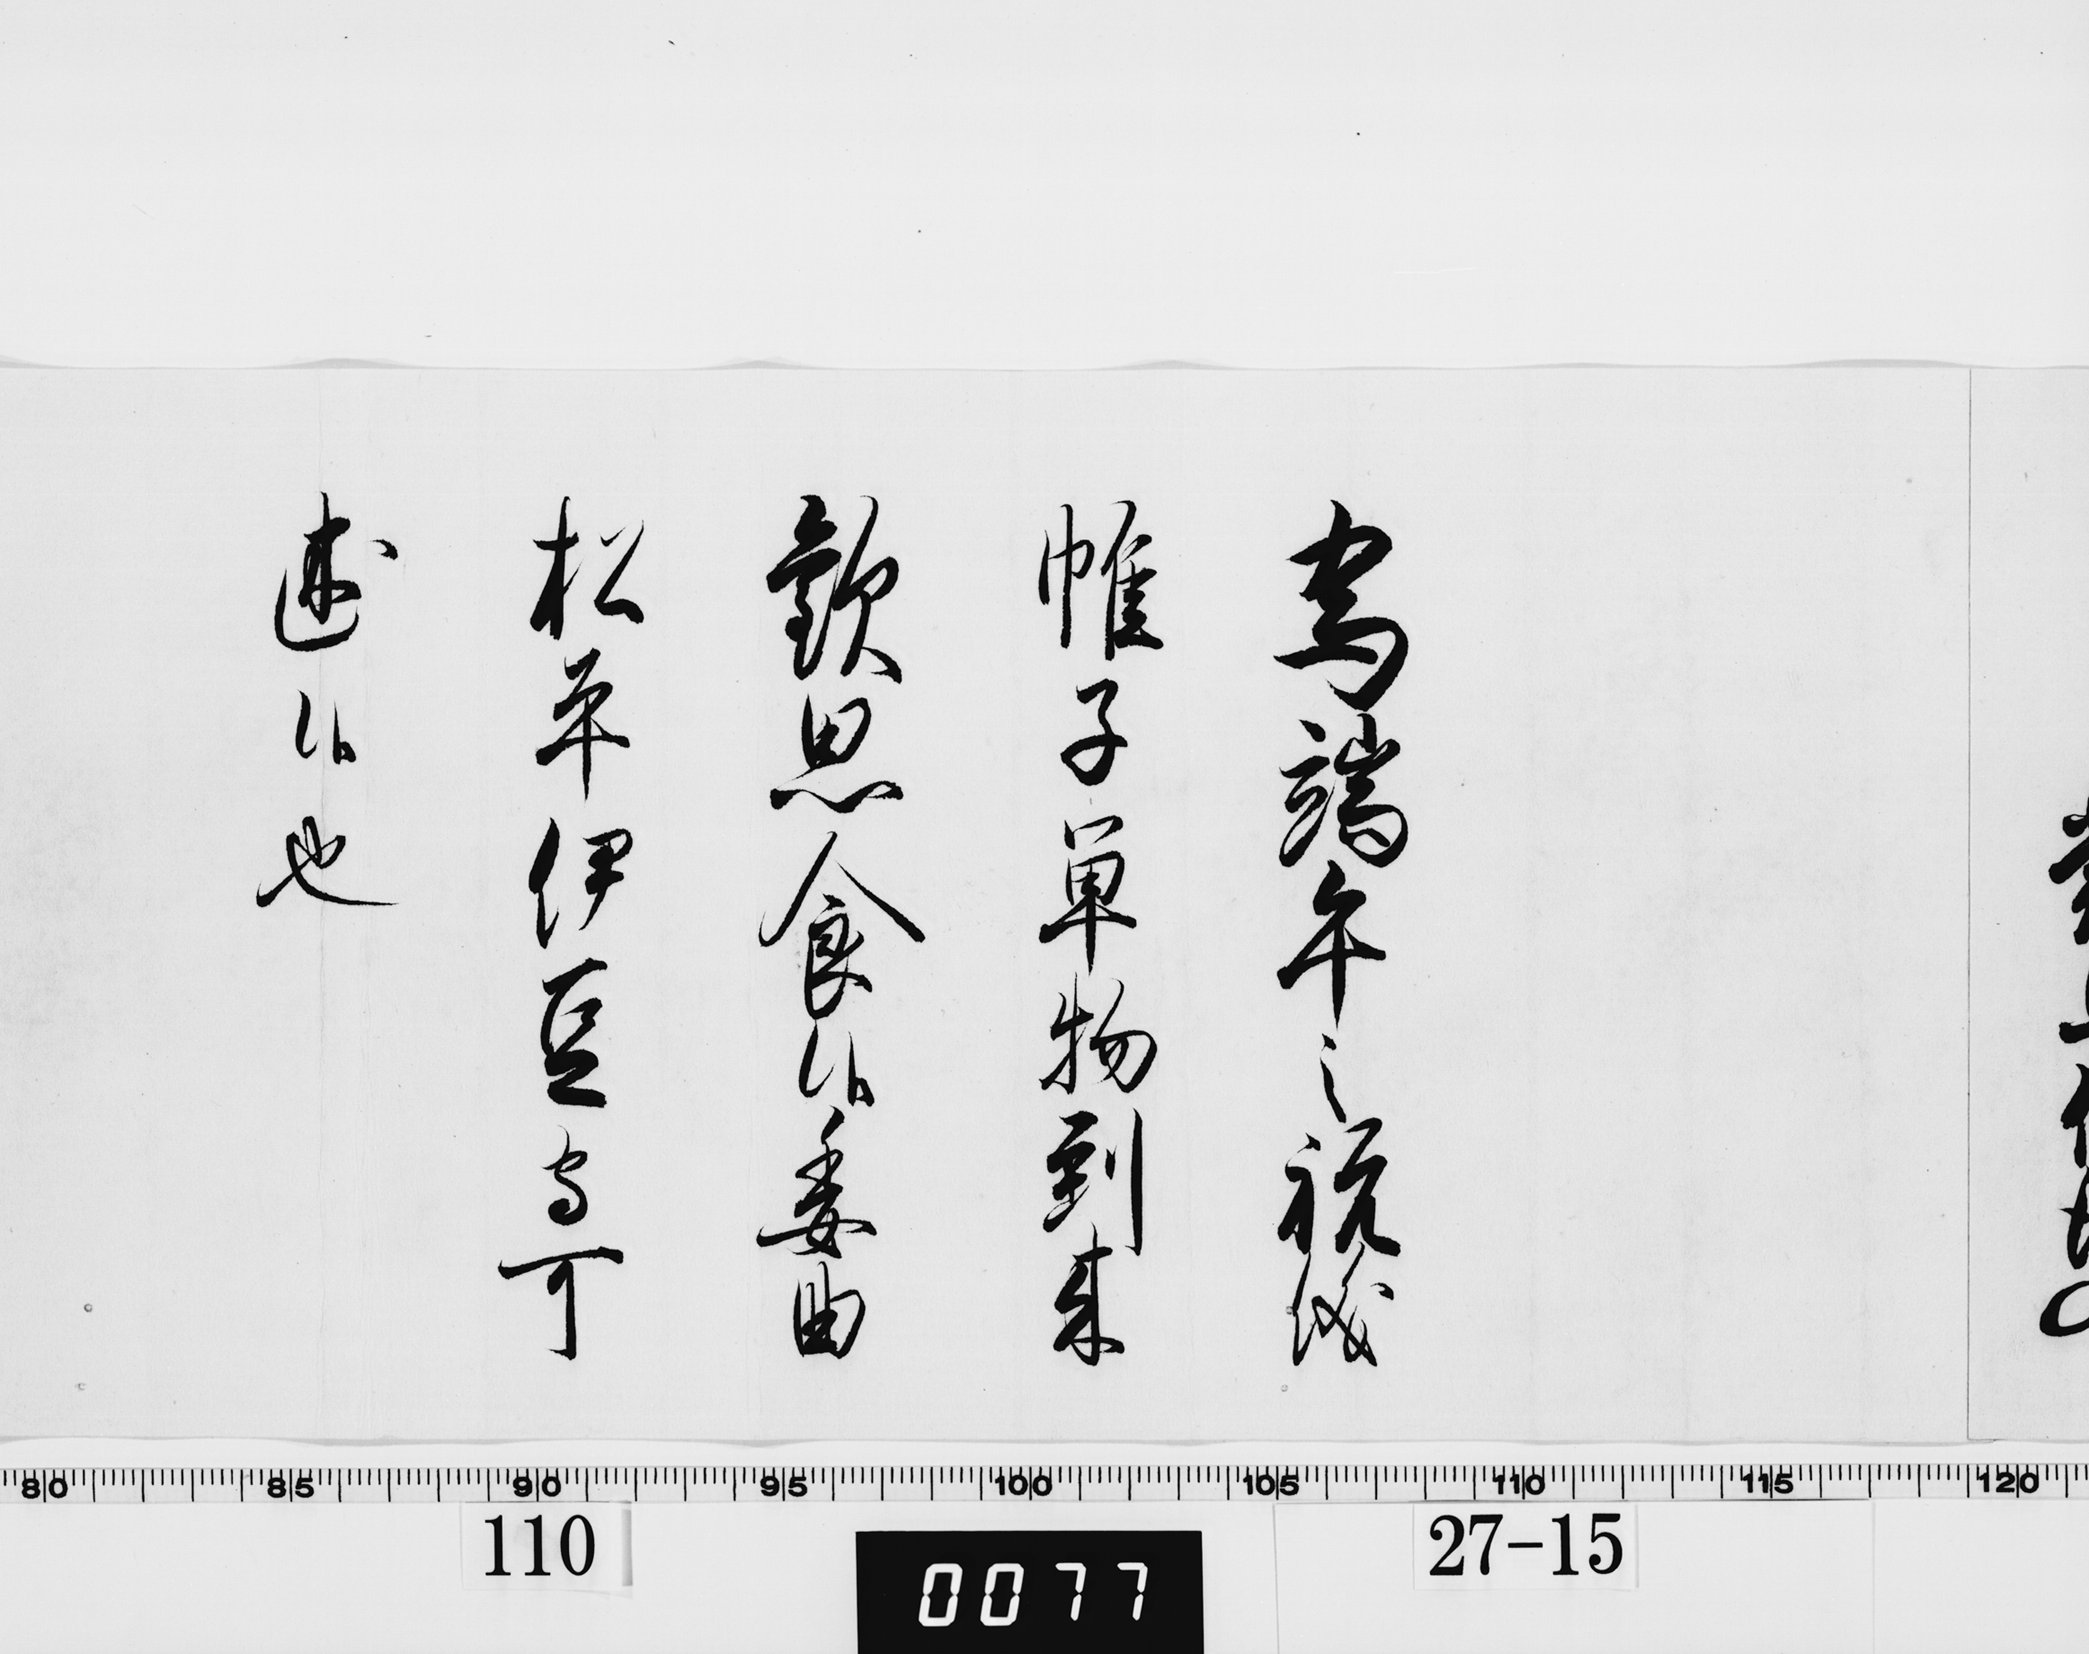 為端午之祝儀
帷子単物到来
歓思食候委曲
松平伊豆守可
述候也
80 85 90 95 100 105 110 115 120
110
0077
27-15